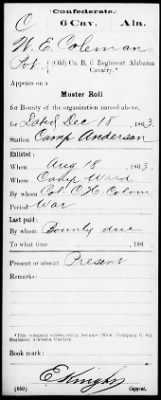 Confederate.
C 6 Cav. Ala.
W. E. Coleman
Pvt, (Old) Co. B, 6 Regiment Alabama
Cavalry.*
Appears on a
Muster Roll
for Bounty of the organization named above,
for Dated Dec 18, 1863.
Station Camp Anderson
Enlisted:
When Aug 18, 1863.
Where Camp Ward
By whom Col. C. H.
Period War
Last paid:
By whom Bounty due
To what time , 186 .
Present or absent Present
Remarks:
*This company subsequently became (New) Company C, 6th
Regiment Alabama Cavalry.
Book mark:
E Knight
(650) Copyist.